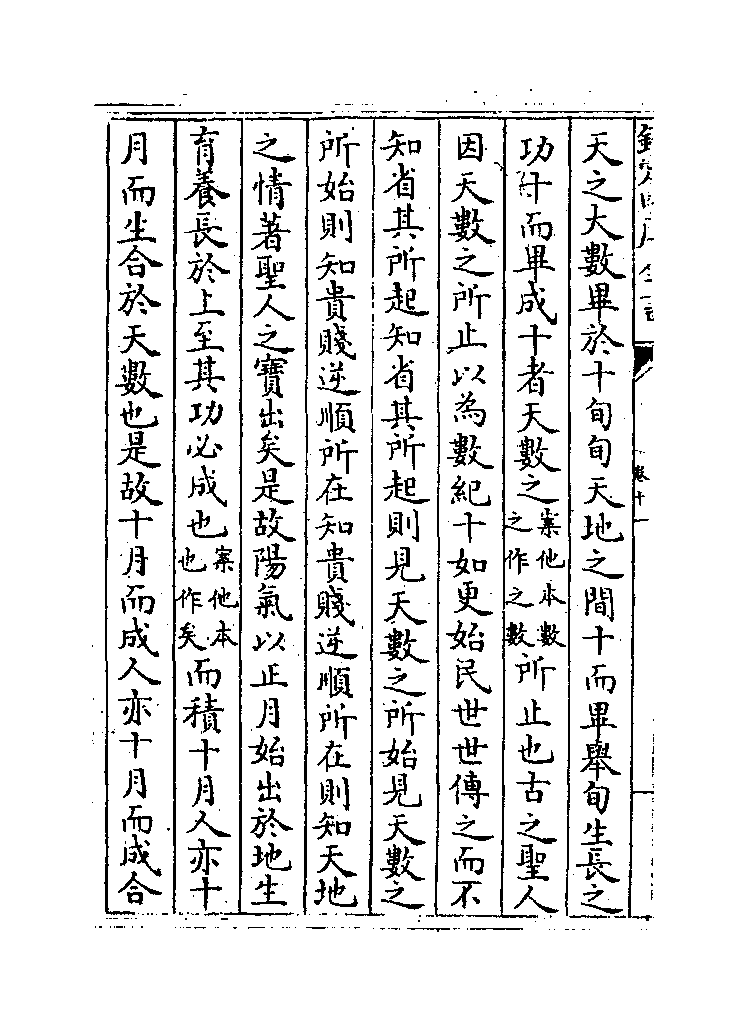 欽定四庫全書
卷十一
天之大數畢於十旬旬天地之間十而畢舉旬生長之
功十而畢成十者天數之案他本數之作之數所止也古之聖人
因天數之所止以為數紀十如更始民世世傳之而不
知省其所起知省其所起則見天數之所始見天數之
所始則知貴賤逆順所在知貴賤逆順所在則知天地
之情著聖人之寶出矣是故陽氣以正月始出於地生
育養長於上至其功必成也案他本也作矣而積十月人亦十
月而生合於天數也是故十月而成人亦十月而成合